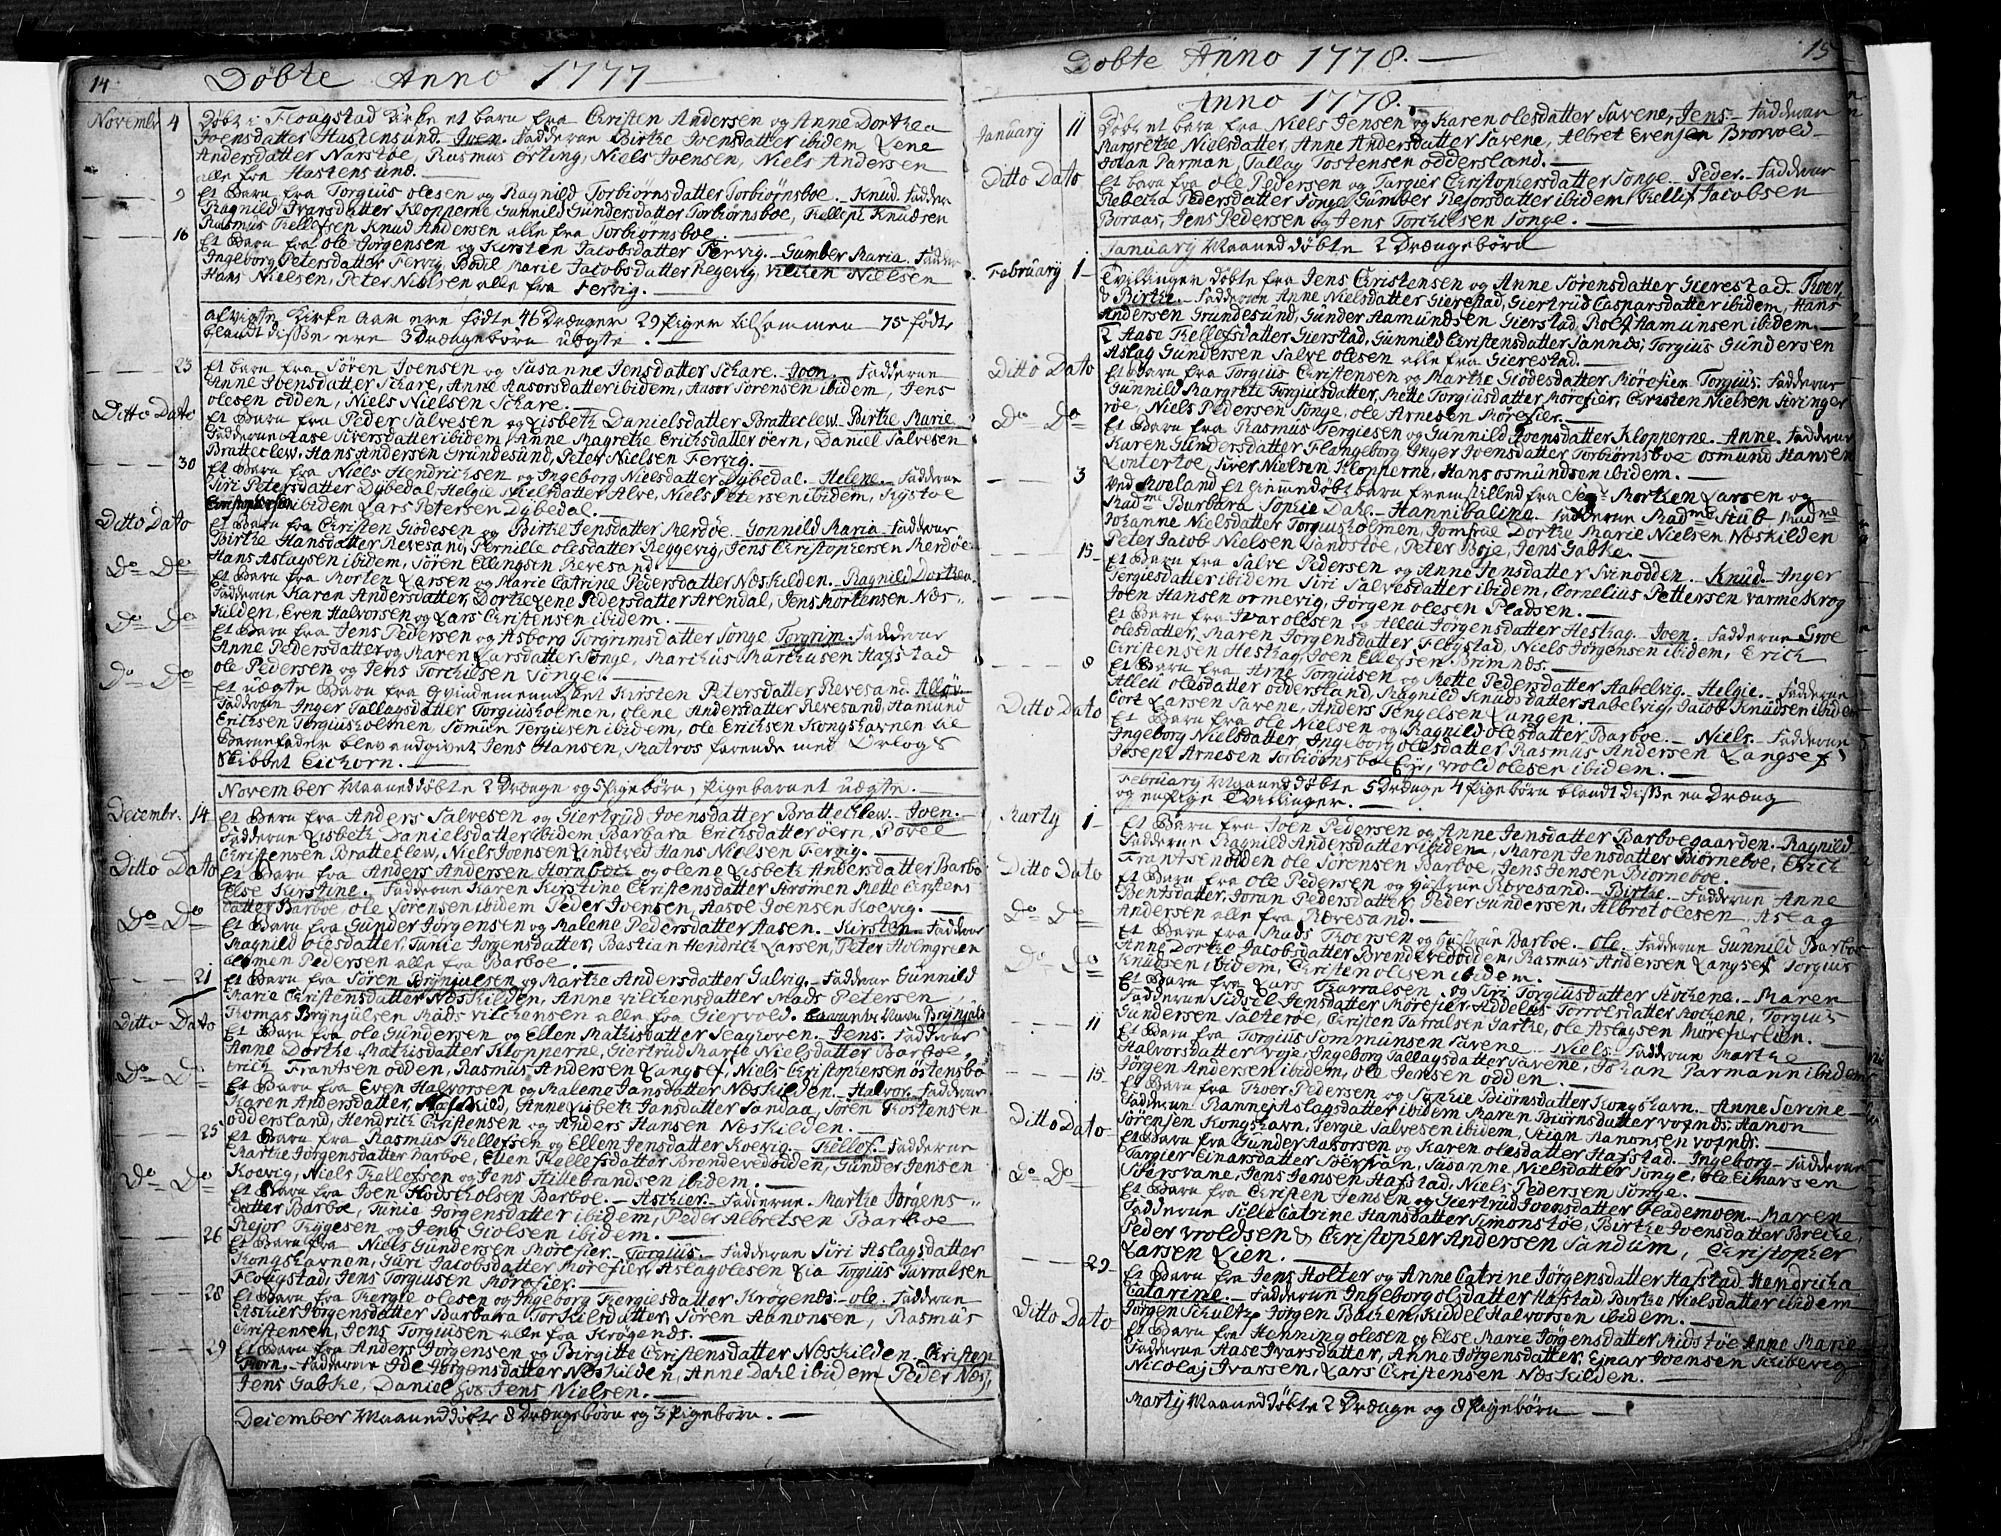 14
Døbte Anno 1777
November 4 Døbt i Flougstad Kirke et barn fra Christen Andersen og Anne Dorthea
Joensdatter Hastensund. Joen. Fadderne Birthe Joensdatter ibidem Lene
Andersdatter Narstøe, Rasmus Ørting, Niels Joensen, Niels Andersen
alle fra Hastensund.
9 Et Barn fra Torgius olesen og Ragnild Torbiørnsdatter Torbiørnsboe. Knud. Fadder
Ragnild Ivarsdatter Klopperne Gunnild Gundersdatter Torbiørnsboe, Kellef Knudsen
Rasmus Kellefsen Knud Andersen alle fra Torbiornsboe.
16 Et Barn fra Ole Jorgensen og Kirsten Jacobsdatter Fervig. Gumber Maria. Fadder
Ingeborg Petersdatter Fervig Bodil Marie Jacobsdatter Regevig, Nielsen
Hans Nielsen, Peter Nielsen alle fra Fervig.
Kirke Aar ere fødte 46 Drænger 29 Piger tilsammen 75 fødte
blandt disse ere 3 Drængebørn uægte.
23 Et barn fra Søren Joensen og Susanne Jensdatter Skare. Joen. Fadderne
Anne Joensdatter Skare, Anne Aasorsdatter ibidem, Aasor Sørensen ibidem, Jens
olesen odden, Niels Nielsen Skare.
Ditto Dato Et Barn fra Peder Salvesen og Lisbeth Danielsdatter Bratteclew. Birthe Marie
Fadderne Aase Siversdatter ibidem, Anne Magrethe Erichsdatter øern, Daniel Salvesen
Bratteclew, Hans Andersen Grundesund, Peter Nielsen Fervig.
30 Et Barn fra Niels Hendrichsen og Ingeborg Nielsdatter Dybedal. Helene. Fadderne
Siri Petersdatter Dybedal Helgie Nielsdatter Alve, Niels Petersen ibidem,
Christophersen ibidem Lars Petersen Dybedal.
Ditto Dato Et Barn fra Christen Giødesen og Birthe Jensdatter Merdøe. Gonnild Maria. Fadderne
Birthe Hansdatter Revesand, Pernille olesdatter Reggevig, Jens Christophersen Merdøe
Hans Aslagsen ibidem, Søren Ellingsen Revesand.
Do Do Et Barn fra Morten Larsen og Marie Catrine Pedersdatter Næskilden. Ragnild Dorthea
Fadderne Karen Andersdatter, Dorthe Lene Pedersdatter Arendal, Jens Mortensen Næs-
kilden, Even Halvorsen og Lars Christensen ibidem.
Do Do Et Barn fra Jens Pedersen og Asborg Torgrimsdatter Songe Torgrim. Fadderne
Anne Pedersdatter og Maren Larsdatter Songe, Marchus Marchusen Hafstad
ole Pedersen og Jens Torchilsen Songe.
Do Do Et uægte Barn fra Qvindemennisket Kirsten Petersdatter Revesand.
Fadderne Inger Tallagsdatter Torgiusholmen, olene Andersdatter Revesand, Hamund
Erichsen Torgiusholmen, Tergiesen ibidem, ole Erichsen Kongshavnen til
Barnefader blev angivet Jens Hansen, Matros farende med Orlogs
Skibbet Eichorn.
November Maaned døbte 2 Drænge og 5 Pigebørn, Pigebarnet uægte.
Decembr. 14 Et Barn fra Anders Salvesen og Giertrud Joensdatter Bratteclew. Joen.
Fadderne Lisbeth Danielsdatter ibidem Barbara Erichsdatter øern, Povel
Christensen Bratteclew, Niels Joensen Lindtved Hans Nielsen Fervig.
Ditto Dato Et Barn fra Anders Andersen Hornbech og olene Lisbeth Andersdatter Barbo
Else Kirstine. Fadderne Karen Kirstine Christensdatter Strømen Mette Christens
datter Barboe, ole Sørensen ibidem Peder Joensen, Aasol Joensen Koevig.
Do Do Et Barn fra Gunder Jorgensen og Malene Pedersdatter Aasen. Kirsten. Fadder
Magnild olesdatter, Tunie Jorgensdatter, Bastian Hendrich Larsen, Peter Holmgreen
Pedersen alle fra Barboe.
21 Et Barn fra Søren Brynjulsen og Marthe Andersdatter Salvig. Fadder Gunnild
Marie Christensdatter Næskilden, Anne Vilchensdatter Mads Petersen
Thomas Brynjulsen Mads Vilchensen alle fra Giervold. Navn Brynjulf
Ditto Dato Et Barn fra Ole Gundersen og Ellen Mathisdatter Seaghoven. Jens. Fadder
Anne Dorthe Mathisdatter Klopperne, Giertrud Marie Nielsdatter Barboe
Erich Frantsen odden, Rasmus Andersen Langsef, Niels Christophersen østensbo
Do Do Et Barn fra Even Halvorsen og Malene Jansdatter Næskilden. Halvor. Fadder
Karen Andersdatter, Næskild, Anne Lisbeth Jansdatter Sandaa, Søren Tostensen
oddersland, Hendrich Christensen og Anders Hansen Næskilden.
25 Et Barn fra Rasmus Kellefsen og Ellen Jensdatter Koevig. Kellef. Fadderne
Marthe Jørgensdatter Barboe, Ellen Kellefsdatter Brendevedodden, Gunder Jensen
Koevig, Niels Kellefsen og Jens Hillebrandsen ibidem.
Do Do Et Barn fra Joen Hodsholsen Barboe. Aschier. Fadderne Marthe Jørgens-
datter Barboe, Tunie Jørgensdatter ibidem, Peder Albretsen Barboe
Rejor Trygesen og Jens Giolsen ibidem.
26 Et Barn fra Niels Gundersen Morefier. Torgius. Fadderne Siri Aslagsdatter
Kongshavnen, Guri Jacobsdatter Morefier, Aslag olesen Lia Torgius Tarralsen
Flougstad, Jens Torgiusen Morefier.
28 Et Barn fra Tergie olesen og Ingeborg Tergiesdatter Krøgenæs. ole. Fadderne
Aschier Jorgensdatter Barbara Torkilsdatter, Søren Aanonsen, Rasmus
Christensen, Jens Torgiusen alle fra Krøgends.
29 Et Barn fra Anders Jorgensen og Birgitte Christensdatter Næskilden. Christen
Fadderne Ide Jørgensdatter Næskilden, Anne Dahl ibidem Peder Næss,
Jens Gabke, Daniel Jens Nielsen.
December Maaned døbte 8 Drængebørn og 3 Pigebørn.
15
Døbte Anno 1778.
Anno 1778.
January 11 Døbt et barn fra Niels Jensen og Karen olesdatter Savene, Jens. Fadderne
Margrethe Nielsdatter, Anne Andersdatter Savene, Albret Evensen Brorvold
Johan Parman, Tallag Tostensen oddersland.
Ditto Dato Et barn fra ole Pedersen og Targier Christophersdatter Songe. Peder. Fadderne
Rebecha Pedersdatter Songe Gumber Rejorsdatter ibidem, Kellef Jacobsen
Boraas, Jens Pedersen og Jens Torchilsen Songe.
January Maaned døbte 2 Drængebørn
February 1 Tvillinger døbte fra Jens Christensen og Anne Sørensdatter Gierestad. Thoer
& Birthe. Fadderne Anne Nielsdatter Gierestad, Giertrud Caspersdatter ibidem, Hans
Andersen Grundesund, Gunder Aamundsen Gierstad, Rolf Aamunsen ibidem
2 Aase Kellefsdatter Gierstad, Gunnild Christensdatter Sannes, Torgius Gundersen
Aslag Gundersen Salve olesen alle fra Gierestad.
Ditto Dato Et barn fra Torgius Christensen og Marthe Giødesdatter Mørefier. Torgius. Fadderne
Gunnild Margrete Torgiusdatter, Mette Torgiusdatter Morefier, Christen Nielsen Stringer
røe, Niels Pedersen Songe, ole Arnesen Morefier.
Do Do Et Barn fra Rasmus Tergiesen og Gunnild Joensdatter Klopperne. Anne. Fadderne
Karen Gundersdatter Flangeborg Inger Joensdatter Torbiørnsboe osmund Hansen
Lontertoe, Siver Nielsen Klopperne, Hans osmundsen ibidem.
3 Ved Moeland et hiemmedøbt barn fremstilled fra Segr. Morthen Larsen og
Madme Barbara Sophie Dahl. Hannibaline. Fadderne Madme Stub Madme
Johanne Nielsdatter Torgiusholmen, Jomfrue Dorthe Marie Nielsen, Næskilden
Peter Jacob Nielsen Sandstøe, Peter Boje, Jens Gabke.
15 Et Barn fra Salve Pedersen og Anne Jensdatter Svinodden. Knud. Inger
Tergiesdatter ibidem Siri Salvesdatter ibidem, Cornelius Pettersen varmekrog
Joen Hansen ormevig, Jørgen olesen Pladsen.
Et Barn fra Ivar olesen og Alleu Jorgensdatter Hesthag. Joen. Fadderne Groe
olesdatter, Maren Jorgensdatter Fløystad, Niels Jørgensen ibidem, Erich
Christensen Hesthag, Joen Ellefsen Brimnds.
8 Et Barn fra Arne Torguisen og Mette Pedersdatter Aabelvig. Helgie. Fadderne
Alleu olesdatter odderstand, Ragnild Knudsdatter Aabelvig, Jacob Knudsen ibidem
Cort Larsen Savene, Anders Tengelsen Langen.
Ditto Dato Et Barn fra ole Nielsen og Ragnild olesdatter Barboe. Niels. Fadderne
Ingeborg Nielsdatter, Ingeborg olesdatter, Rasmus Andersen Langsef,
Joseph Arnesen Torbiørnsboe Eje, vrold olesen ibidem.
February Maaned døbte 5 Drænge 4 Pigebørn blandt disse en Dræng
og en Pige Tvillinger.
Marty 1 Et Barn fra Joen Pedersen og Anne Jensdatter Barboegaarden. Ragnild
Fadderne Ragnild Andersdatter ibidem, Maren Jensdatter Biørneboe, Erich
Frantsen odden ole Sørensen Barboe, Jens Jensen Biorneboe.
Ditto Dato Et Barn fra ole Pedersen og Hustrue Revesand. Birthe. Fadderne Anne
Bentsdatter, Joran Pedersdatter, Peder Gundersen, Albret olesen, Aslag
Andersen alle fra Revesand.
Do Do Et Barn fra Mads Thoersen og Hustrue Barboe. ole. Fadderne Gunnild Barboe
Anne Dorthe Jacobsdatter Brendevedodden, Rasmus Andersen Langsef Torgius
Knudsen ibidem, Christen olesen ibidem.
Do Do Et Barn fra Lars Tarralsen og Siri Torgiusdatter Stochene. Maren
Fadderne Sidsel Jensdatter Morefier, Torrolsdatter Stochene, Torgius
Gundersen Salterøe, Christen Tarralsen Garthe, ole Aslagsen Morefierlien.
11 Et Barn fra Torgius Sommunsen Savene. Niels. Fadderne Marthe
Halvorsdatter voje, Ingeborg Tallagsdatter Savene, Johan Parmann ibidem
Jorgen Andersen ibidem, ole Jensen odden.
15 Et Barn fra Thoer Pedersen og Sophie Biørnsdatter Kongshavn. Anne Serine
Fadderne Ranne Aslagsdatter ibidem Maren Biørnsdatter vognds, Aanon
Sørensen Kongshavn, Tergie Salvesen ibidem, Stian Aanonsen vognds.
Ditto Dato Et Barn fra Gunder Aasorsen og Karen olesdatter Hafstad. Ingeborg. Fadderne
Targier Einarsdatter Sørsvan, Susanne Nielsdatter Songe, ole Einarsen
Sibersvane, Jens Jensen Hafstad, Niels Pedersen Songe.
Do Do Et Barn fra Christen Jensen og Giertrud Joensdatter Flademoen. Maren
Fadderne Sille Catrine Hansdatter Simonstøe, Birthe Joensdatter Breche,
Peder vroldsen & Christopher Andersen Sandum, Christopher
Larsen Lien.
29 Et Barn fra Jens Holter og Anne Catrine Jørgensdatter Hafstad Hendricha
Catarine. Fadderne Ingeborg olsdatter Hafstad, Birthe Nielsdatter ibidem
Jørgen Schultz Jorgen Bachen, Kiddel Halvorsen ibidem.
Ditto Dato Et Barn fra Henning olesen og Else Marie Jørgensdatter Midstøe Anne Marie
Fadderne Aase Ivarsdatter, Anne Jørgensdatter, Ejnar Joensen Skibevig
Nicolaj Ivarsen, Lars Christensen Næskilden.
Marty Maaned døbte 2 Drænge og 8 Pigebørn